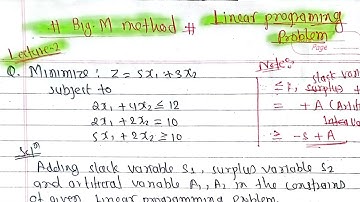 # Big-M method #
Linear programing
Problem
Page
Lecture-2
Q. Minimize: Z = 5x₁+3x₂
subject to
2x₁ + 4x₂ ≤ 12
2x₁ + 2x₂ = 10
5x₁ + 2x₂ ≥ 10
Notes:
slack var
≤ , surplus +
= +A (Arti
≥ -S + A
Solⁿ
Adding slack variable S₁, surplus variable S₂
and artifical variable A₁, A₂ in the constrains
of given linear programming problem.